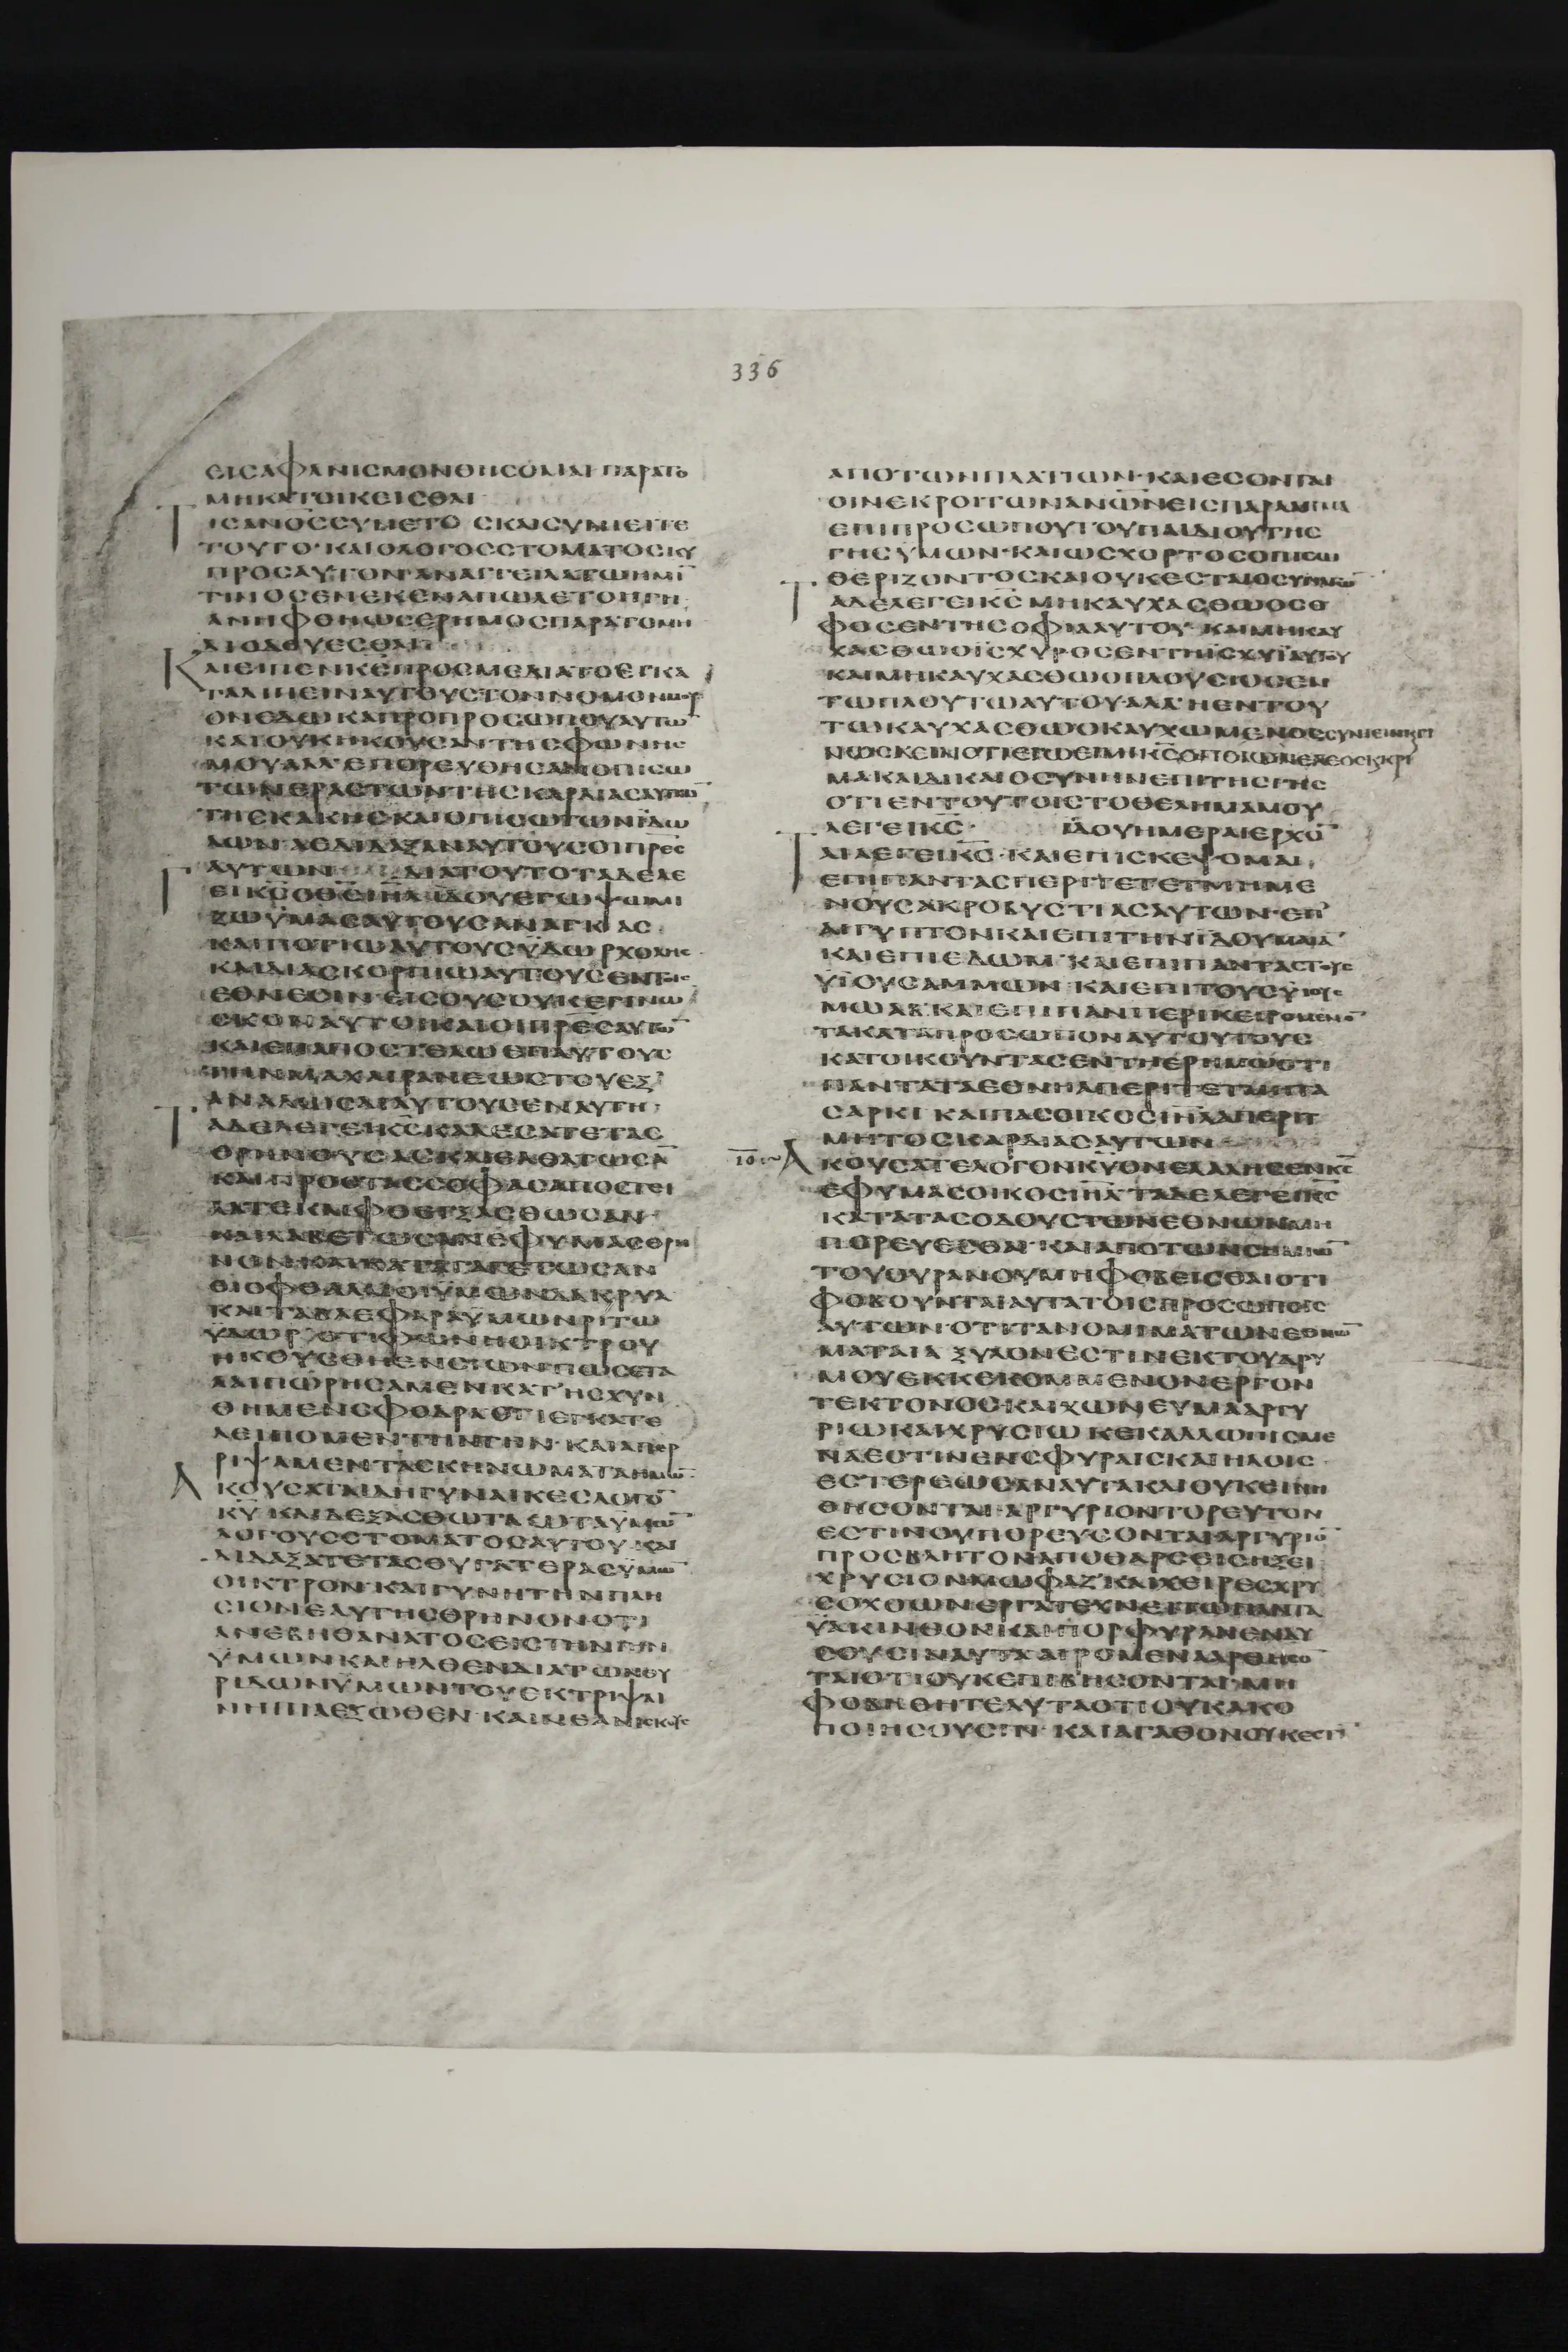 336
ΕΙϹΑΦΑΝΙϹΜΟΝΘΗϹΟΜΑΙ ΠΑΡΑΤΟ
ΜΗΚΑΤΟΙΚΕΙϹΘΑΙ
ΤΙϹΑΝΟϹϹΥΝΕΤΟϹΚΑΙϹΥΝΙΕΤΩ
ΤΟΥΤΟ·ΚΑΙΟΛΟΓΟϹϹΤΟΜΑΤΟϹΚΥ
ΠΡΟϹΑΥΤΟΝΑΝΑΓΓΕΙΛΑΤΩΗΜΙ
ΤΙΝΟϹΕΝΕΚΕΝΑΠΩΛΕΤΟΗΓΗ
ΑΝΗΦΘΗΩϹΕΡΗΜΟϹΠΑΡΑΤΟΜΗ
ΔΙΟΔΕΥΕϹΘΑΙ
ΚΑΙΕΙΠΕΝΚϹΠΡΟϹΜΕΔΙΑΤΟΕΓΚΑ
ΤΑΛΙΠΕΙΝΑΥΤΟΥϹΤΟΝΝΟΜΟΝΜΟΥ
ΟΝΕΔΩΚΑΠΡΟΠΡΟϹΩΠΟΥΑΥΤΩ
ΚΑΙΟΥΚΗΚΟΥϹΑΝΤΗϹΦΩΝΗϹ
ΜΟΥΑΛΛΕΠΟΡΕΥΘΗϹΑΝΟΠΙϹΩ
ΤΩΝΕΡΑϹΤΩΝΤΗϹΚΑΡΔΙΑϹΑΥΤΩ
ΤΗϹΚΑΚΗϹΚΑΙΟΠΙϹΩΤΩΝΙΔΩ
ΛΩΝΑΕΔΙΔΑΞΑΝΑΥΤΟΥϹΟΙΠΡΕϹ
ΑΥΤΩΝ ΔΙΑΤΟΥΤΟΤΑΔΕΛΕ
ΓΕΙΚϹΟΘϹΙΗΛΙΔΟΥΕΓΩΨΩΜΙ
ΖΩΥΜΑϹΑΥΤΟΥϹΑΝΑΓΚΑϹ
ΚΑΙΠΟΤΙΩΑΥΤΟΥϹΥΔΩΡΧΟΛΗϹ
ΚΑΙΔΙΑϹΚΟΡΠΙΩΑΥΤΟΥϹΕΝΤΟΙϹ
ΕΘΝΕϹΙΝ·ΕΙϹΟΥϹΟΥΚΕΓΙΝΩ
ϹΚΟΝΑΥΤΟΙΚΑΙΟΙΠΡΕϹΑΥΤΩ
ΚΑΙΕΠΑΠΟϹΤΕΛΩΕΠΑΥΤΟΥϹ
ΤΗΝΜΑΧΑΙΡΑΝΕΩϹΤΟΥΕΞ
ΑΝΑΛΩϹΑΙΑΥΤΟΥϹΕΝΑΥΤΗ
ΤΑΔΕΛΕΓΕΙΚϹΚΑΛΕϹΑΤΕΤΑϹ
ΘΡΗΝΟΥϹΑϹΚΑΙΕΛΘΑΤΩϹΑ
ΚΑΙΠΡΟϹΤΑϹϹΟΦΑϹΑΠΟϹΤΕΙ
ΛΑΤΕΚΑΙΦΘΕΓΞΑϹΘΩϹΑΝ
ΚΑΙΛΑΒΕΤΩϹΑΝΕΦΥΜΑϹΘΡΗ
ΝΟΝΚΑΙΚΑΤΑΓΑΓΕΤΩϹΑΝ
ΟΙΟΦΘΑΛΜΟΙΥΜΩΝΔΑΚΡΥΑ
ΚΑΙΤΑΒΛΕΦΑΡΑΥΜΩΝΡΙΤΩ
ΥΔΩΡ·ΟΤΙΦΩΝΗΟΙΚΤΡΟΥ
ΗΚΟΥϹΘΗΕΝϹΙΩΝΠΩϹΕΤΑ
ΛΑΙΠΩΡΗϹΑΜΕΝΚΑΤΗϹΧΥΝ
ΘΗΜΕΝϹΦΟΔΡΑΟΤΙΕΓΚΑΤΕ
ΛΕΙΠΟΜΕΝΤΗΝΓΗΝ·ΚΑΙΑΠΕΡ
ΡΙΨΑΜΕΝΤΑϹΚΗΝΩΜΑΤΑΗΜΩ
ΑΚΟΥϹΑΤΑΙΔΗΓΥΝΑΙΚΕϹΛΟΓΟ
ΚΥ ΚΑΙΔΕΞΑϹΘΩΤΑΩΤΑΥΜΩ
ΛΟΓΟΥϹϹΤΟΜΑΤΟϹΑΥΤΟΥ·ΚΑΙ
ΔΙΔΑΞΑΤΕΤΑϹΘΥΓΑΤΕΡΑϹΥΜΩ
ΟΙΚΤΡΟΝ·ΚΑΙΓΥΝΗΤΗΝΠΛΗ
ϹΙΟΝΕΑΥΤΗϹΘΡΗΝΟΝΟΤΙ
ΑΝΕΒΗΘΑΝΑΤΟϹΕΙϹΤΗΝΓΗΝ
ΥΜΩΝΚΑΙΗΛΘΕΝΔΙΑΤΩΝΘΥ
ΡΙΔΩΝΥΜΩΝΤΟΥΕΚΤΡΙΨΑΙ
ΝΗΠΙΑΕΞΩΘΕΝ·ΚΑΙΝΕΑΝΙϹΚΟΥϹ
ΑΠΟΤΩΝΠΛΑΤΙΩΝ·ΚΑΙΕϹΟΝΤΑΙ
ΟΙΝΕΚΡΟΙΤΩΝΑΝΩΝΕΙϹΠΑΡΑΔΙΓΜΑ
ΕΠΙΠΡΟϹΩΠΟΥΤΟΥΠΑΙΔΙΟΥΤΗϹ
ΓΗϹΥΜΩΝ·ΚΑΙΩϹΧΟΡΤΟϹΟΠΙϹΩ
ΘΕΡΙΖΟΝΤΟϹΚΑΙΟΥΚΕϹΤΑΙΟϹΥΝΑΓΩ
ΤΑΔΕΛΕΓΕΙΚϹ ΜΗΚΑΥΧΑϹΘΩΟϹΟ
ΦΟϹΕΝΤΗϹΟΦΙΑΑΥΤΟΥ·ΚΑΙΜΗΚΑΥ
ΧΑϹΘΩΟΙϹΧΥΡΟϹΕΝΤΗΙϹΧΥΙΑΥΤΟΥ
ΚΑΙΜΗΚΑΥΧΑϹΘΩΟΠΛΟΥϹΙΟϹΕΝ
ΤΩΠΛΟΥΤΩΑΥΤΟΥ·ΑΛΛΗΕΝΤΟΥ
ΤΩΚΑΥΧΑϹΘΩΟΚΑΥΧΩΜΕΝΟϹϹΥΝΙΕΙΝΚΓΙ
ΝΩϹΚΕΙΝΟΤΙΕΓΩΕΙΜΙΚϹΟΠΟΙΩΝΕΛΕΟϹΚΚΡΙ
ΜΑΚΑΙΔΙΚΑΙΟϹΥΝΗΝΕΠΙΤΗϹΓΗϹ
ΟΤΙΕΝΤΟΥΤΟΙϹΤΟΘΕΛΗΜΑΜΟΥ
ΛΕΓΕΙΚϹ· ΙΔΟΥΗΜΕΡΑΙΕΡΧΟ
ΤΑΙΛΕΓΕΙΚϹ·ΚΑΙΕΠΙϹΚΕΨΟΜΑΙ
ΕΠΙΠΑΝΤΑϹΠΕΡΙΤΕΤΕΤΜΗΜΕ
ΝΟΥϹΑΚΡΟΒΥϹΤΙΑϹΑΥΤΩΝ·ΕΠ
ΑΙΓΥΠΤΟΝΚΑΙΕΠΙΤΗΝΙΔΟΥΜΑΙΑ
ΚΑΙΕΠΙΕΔΩΜ·ΚΑΙΕΠΙΠΑΝΤΑϹΤΟΥϹ
ΥΙΟΥϹΑΜΜΩΝ·ΚΑΙΕΠΙΤΟΥϹΥΙΟΥϹ
ΜΩΑΒ·ΚΑΙΕΠΙΠΑΝΠΕΡΙΚΕΙΡΟΜΕΝΟ
ΤΑΚΑΤΑΠΡΟϹΩΠΟΝΑΥΤΟΥΤΟΥϹ
ΚΑΤΟΙΚΟΥΝΤΑϹΕΝΤΗΕΡΗΜΩΟΤΙ
ΠΑΝΤΑΤΑΕΘΝΗΑΠΕΡΙΤΕΤΜΗΤΑ
ϹΑΡΚΙ ΚΑΙΠΑϹΟΙΚΟϹΙΗΛΑΠΕΡΙΤ
ΜΗΤΟϹΚΑΡΔΙΑϹΑΥΤΩΝ
ΑΚΟΥϹΑΤΕΛΟΓΟΝΚΥΟΝΕΛΑΛΗϹΕΝΚϹ
ΕΦΥΜΑϹΟΙΚΟϹΙΗΛ·ΤΑΔΕΛΕΓΕΙΚϹ
ΚΑΤΑΤΑϹΟΔΟΥϹΤΩΝΕΘΝΩΝΜΗ
ΠΟΡΕΥΕϹΘΑΙ·ΚΑΙΑΠΟΤΩΝϹΗΜΙΩ
ΤΟΥΟΥΡΑΝΟΥΜΗΦΟΒΕΙϹΘΑΙΟΤΙ
ΦΟΒΟΥΝΤΑΙΑΥΤΑΤΟΙϹΠΡΟϹΩΠΟΙϹ
ΑΥΤΩΝ·ΟΤΙΤΑΝΟΜΙΜΑΤΩΝΕΘΝΩ
ΜΑΤΑΙΑ ΞΥΛΟΝΕϹΤΙΝΕΚΤΟΥΔΡΥ
ΜΟΥΕΚΚΕΚΟΜΜΕΝΟΝΕΡΓΟΝ
ΤΕΚΤΟΝΟϹ·ΚΑΙΧΩΝΕΥΜΑΑΡΓΥ
ΡΙΩΚΑΙΧΡΥϹΙΩ ΚΕΚΑΛΛΩΠΙϹΜΕ
ΝΑΕϹΤΙΝΕΝϹΦΥΡΑΙϹΚΑΙΗΛΟΙϹ
ΕϹΤΕΡΕΩϹΑΝΑΥΤΑΚΑΙΟΥΚΕΙΝΗ
ΘΗϹΟΝΤΑΙ·ΑΡΓΥΡΙΟΝΤΟΡΕΥΤΟΝ
ΕϹΤΙΝΟΥΠΟΡΕΥϹΟΝΤΑΙΑΡΓΥΡΙΟ
ΠΡΟϹΒΛΗΤΟΝΑΠΟΘΑΡϹΕΙϹΗΞΕΙ
ΧΡΥϹΙΟΝΜΩΦΑΖ·ΚΑΙΧΕΙΡΕϹΧΡΥ
ϹΟΧΟΩΝΕΡΓΑΤΕΧΝΕΙΤΩΝΠΑΝΤΑ
ΥΑΚΙΝΘΟΝΚΑΙΠΟΡΦΥΡΑΝΕΝΔΥ
ϹΟΥϹΙΝΑΥΤΑΑΙΡΟΜΕΝΑΑΡΘΗϹΟ
ΤΑΙΟΤΙΟΥΚΕΠΙΒΗϹΟΝΤΑΙ·ΜΗ
ΦΟΒΗΘΗΤΕΑΥΤΑΟΤΙΟΥΚΑΚΟ
ΠΟΙΗϹΟΥϹΙΝ·ΚΑΙΑΓΑΘΟΝΟΥΚΕϹΤΙ